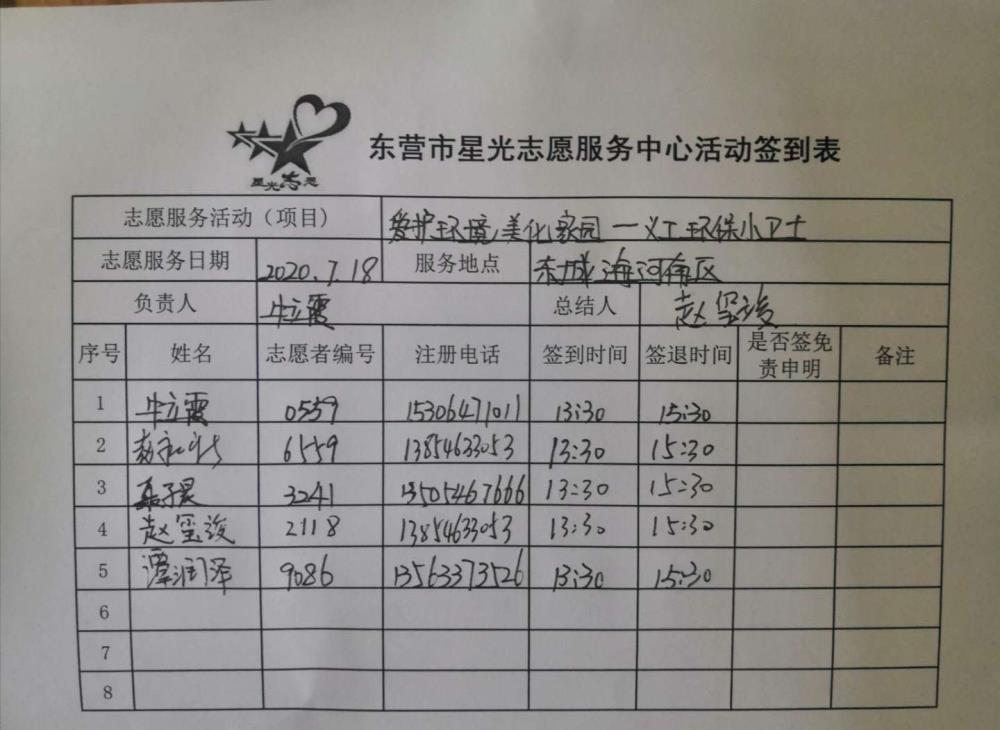 星光志愿
东营市星光志愿服务中心活动签到表
志愿服务活动（项目） 爱护环境,美化家园一义工环保小卫士
志愿服务日期 2020.7.18 服务地点 东城海河南区
负责人 牛立霞 总结人 赵玺浚
序号 姓名 志愿者编号 注册电话 签到时间 签退时间 是否签免责申明 备注
1 牛立霞 0559 15306471011 13:30 15:30
2 6559 13854633053 13:30 15:30
3 3241 13505467666 13:30 15:30
4 赵玺浚 2118 13854633053 13:30 15:30
5 谭润泽 9086 13563373526 13:30 15:30
6
7
8